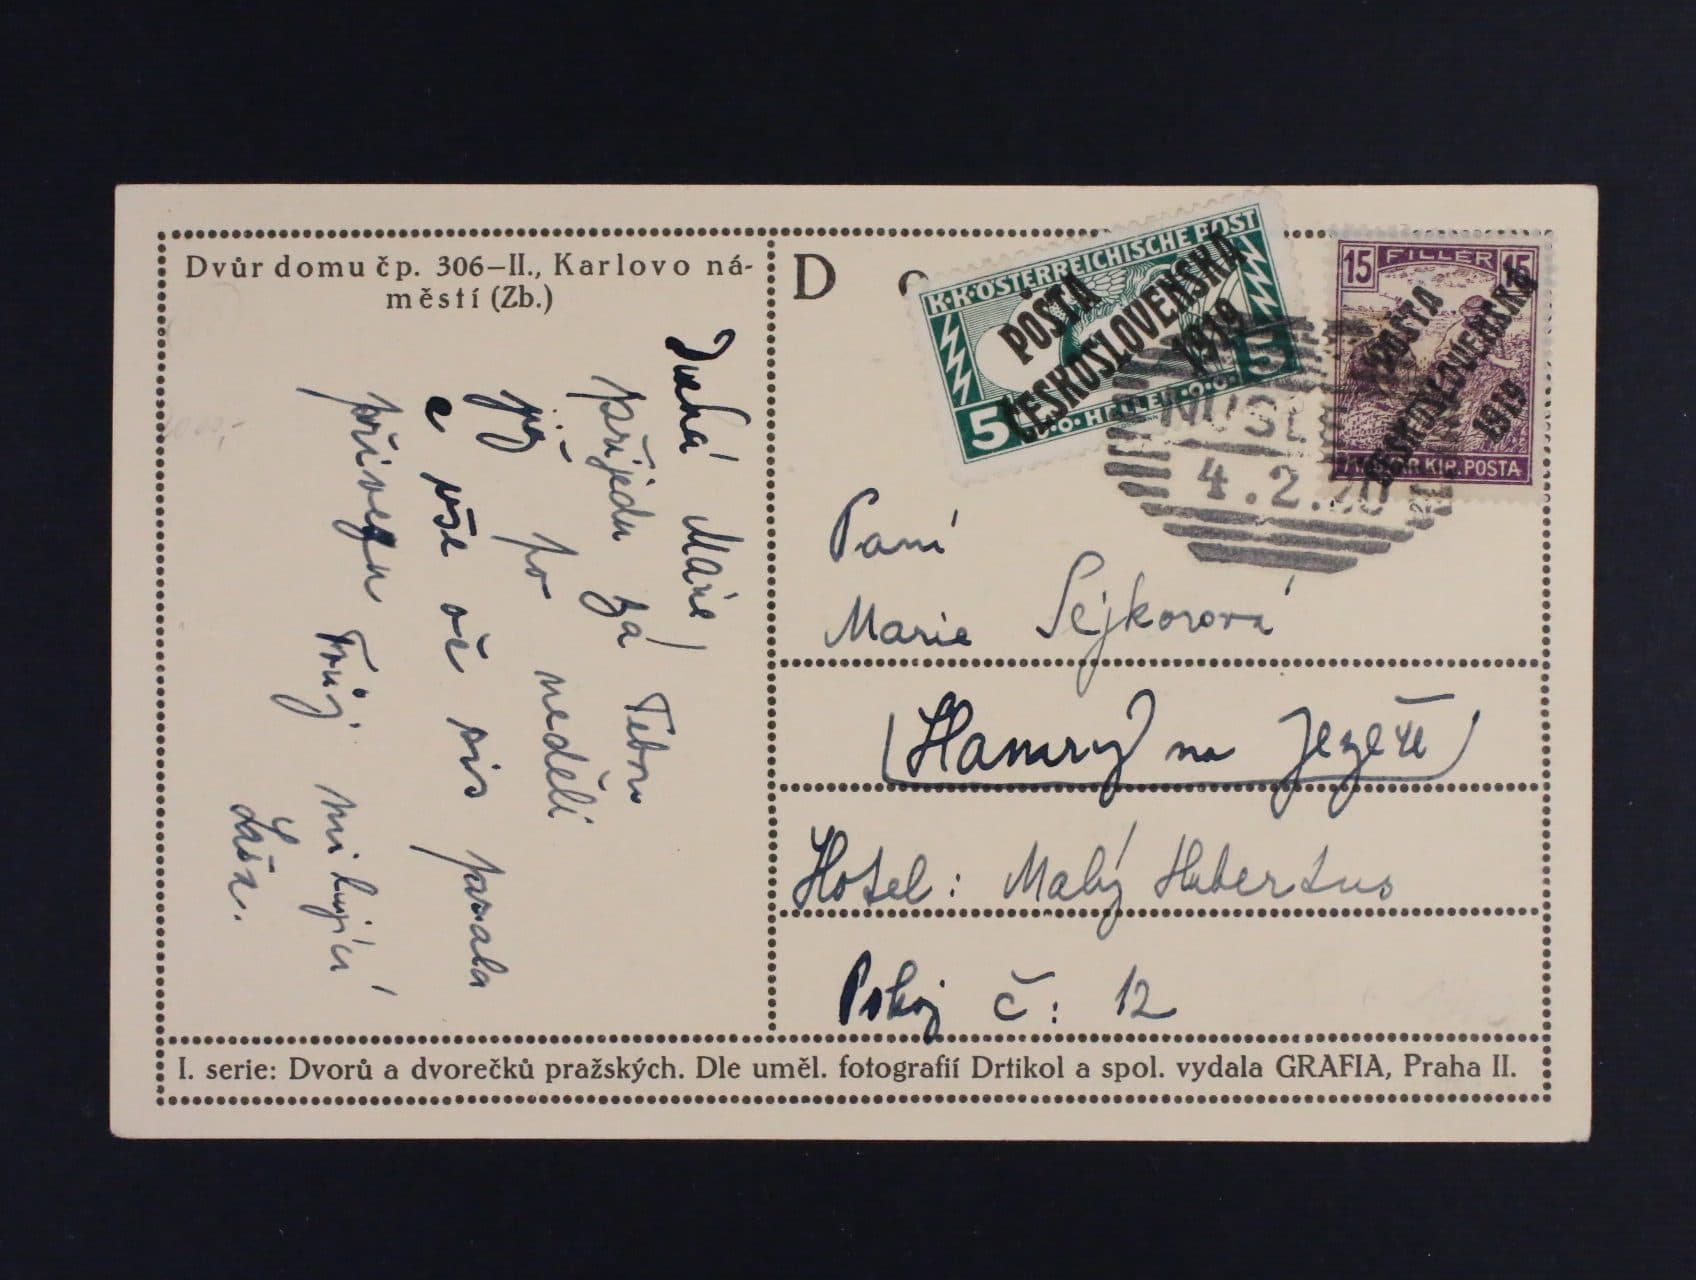 Dvůr domu čp. 306–II., Karlovo ná-
městí (Zb.)
D
K·K·ÖSTERREICHISCHE POST
5 HELLER 5
POŠTA
ČESKOSLOVENSKÁ
1919
15 FILLÉR 15
MAGYAR KIR. POSTA
POŠTA
ČESKOSLOVENSKÁ
1919
NUSLE
4.2.20
Drahá Mařie!
přijedu za Tebou
již po neděli
a vše oč sis psala
přivezu Tvůj milující
Láďa.
Paní
Marie Sejkorová
(Hamry na Jezeře)
Hotel: Malý Hubertus
Pokoj č: 12
I. serie: Dvorů a dvorečků pražských. Dle uměl. fotografií Drtikol a spol. vydala GRAFIA, Praha II.